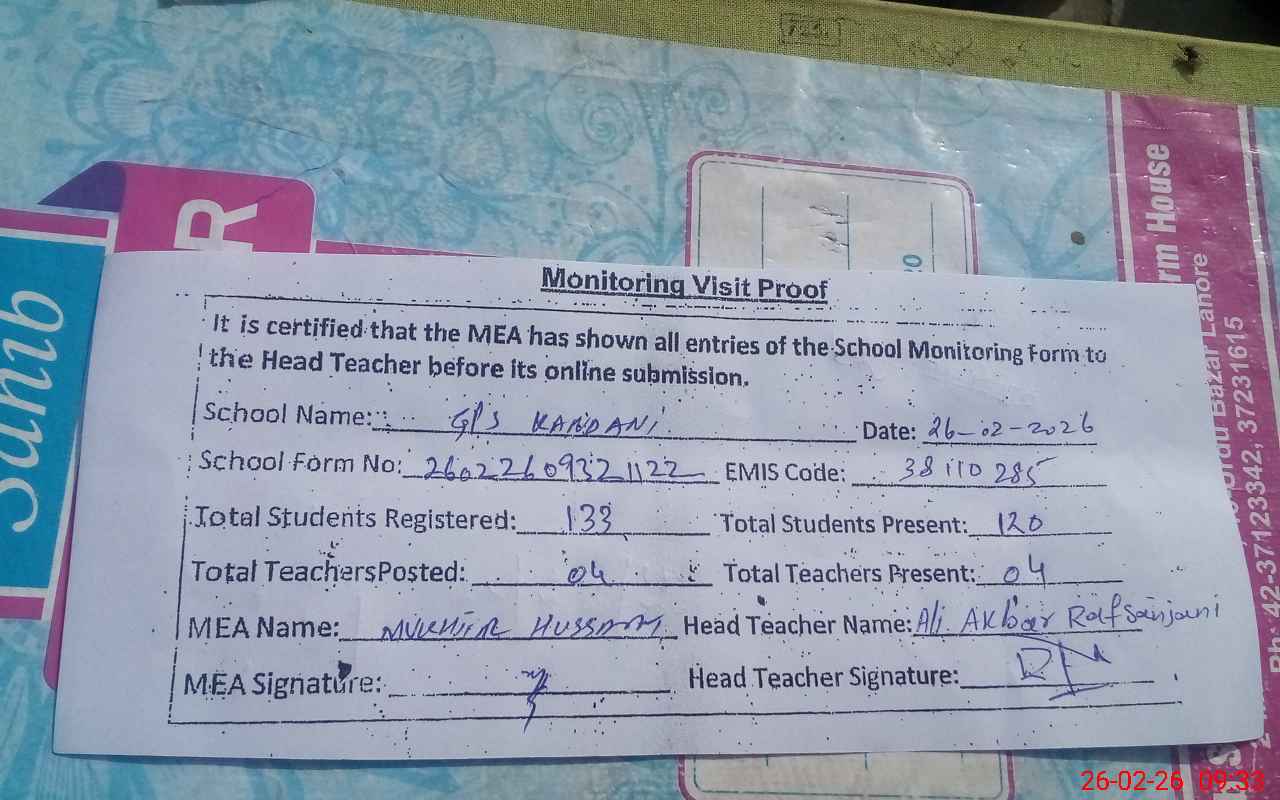 725.
R
Sahib
20
rm House
Urdu Bazar Lahore
Ph: 42-37123342, 37231615
Monitoring Visit Proof
It is certified that the MEA has shown all entries of the School Monitoring Form to
the Head Teacher before its online submission.
School Name: GPS KANDANI Date: 26-02-2026
School Form No: 26022609321122 EMIS Code: 38110285
Total Students Registered: 133 Total Students Present: 120
Total Teachers Posted: 04 Total Teachers Present: 04
MEA Name: MUKHTIR HUSSAIN Head Teacher Name: Ali Akbar Rafsanjani
MEA Signature: Head Teacher Signature:
26-02-26 09:33